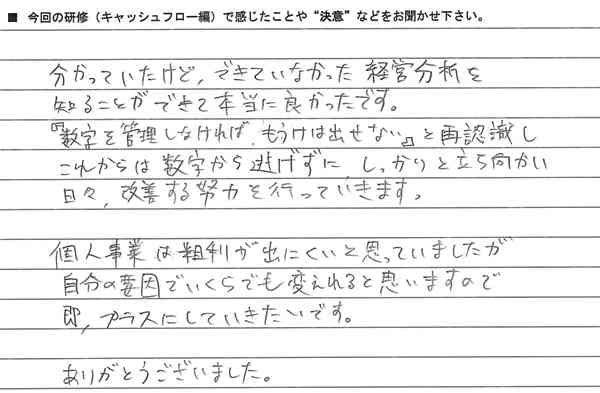 ■ 今回の研修（キャッシュフロー編）で感じたことや“決意”などをお聞かせ下さい。
分かっていたけど，できていなかった 経営分析を
知ることができて本当に良かったです。
『数字を管理しなければ，もうけは出せない』と再認識し
これからは数字から逃げずに，しっかりと立ち向かい
日々，改善する努力を行っていきます。
個人事業は粗利が出にくいと思っていましたが
自分の要因でいくらでも変えれると思いますので
即，プラスにしていきたいです。
ありがとうございました。